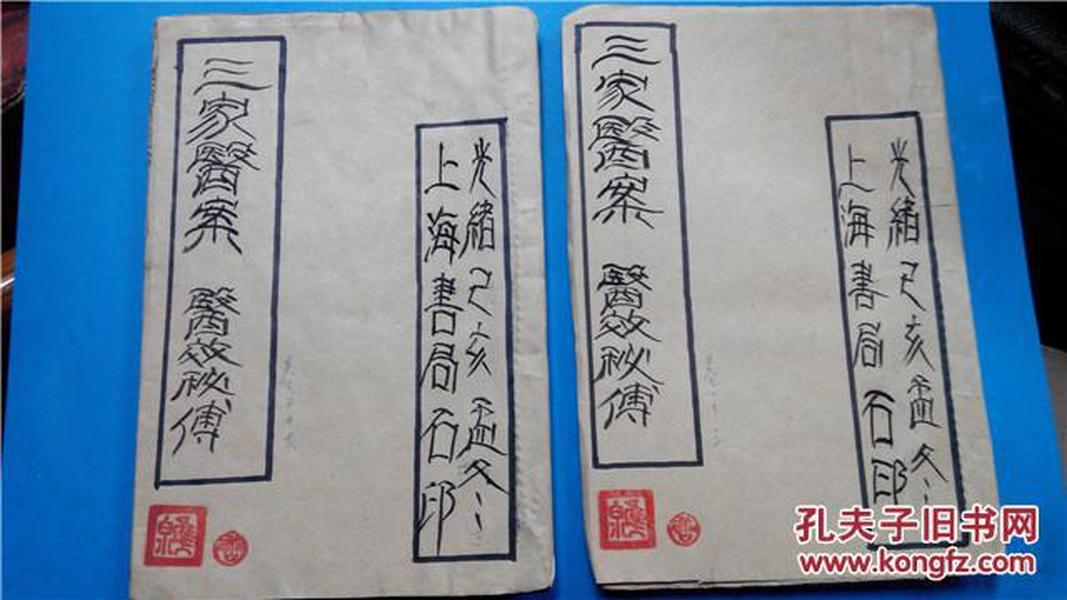 光緒己亥孟冬
上海書局石印
三家醫案 醫效秘傅
光緒己亥孟冬
上海書局石印
三家醫案 醫效秘傅
孔夫子旧书网
www.kongfz.com